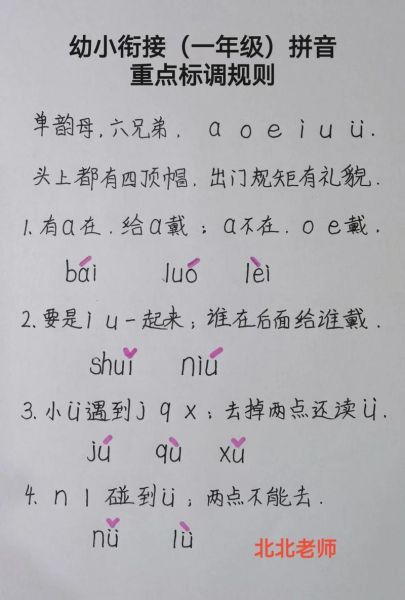 幼小衔接（一年级）拼音
重点标调规则
单韵母,六兄弟, a o e i u ü.
头上都有四顶帽. 出门规矩有礼貌.
1. 有a在. 给a戴 ; a不在. o e戴.
bái luó lèi
2. 要是i u一起来; 谁在后面给谁戴.
shuǐ niú
3. 小ü遇到j q x; 去掉两点还读ü.
jú qù xǔ
4. n l 碰到ü; 两点不能去.
nǚ lǜ
北北老师